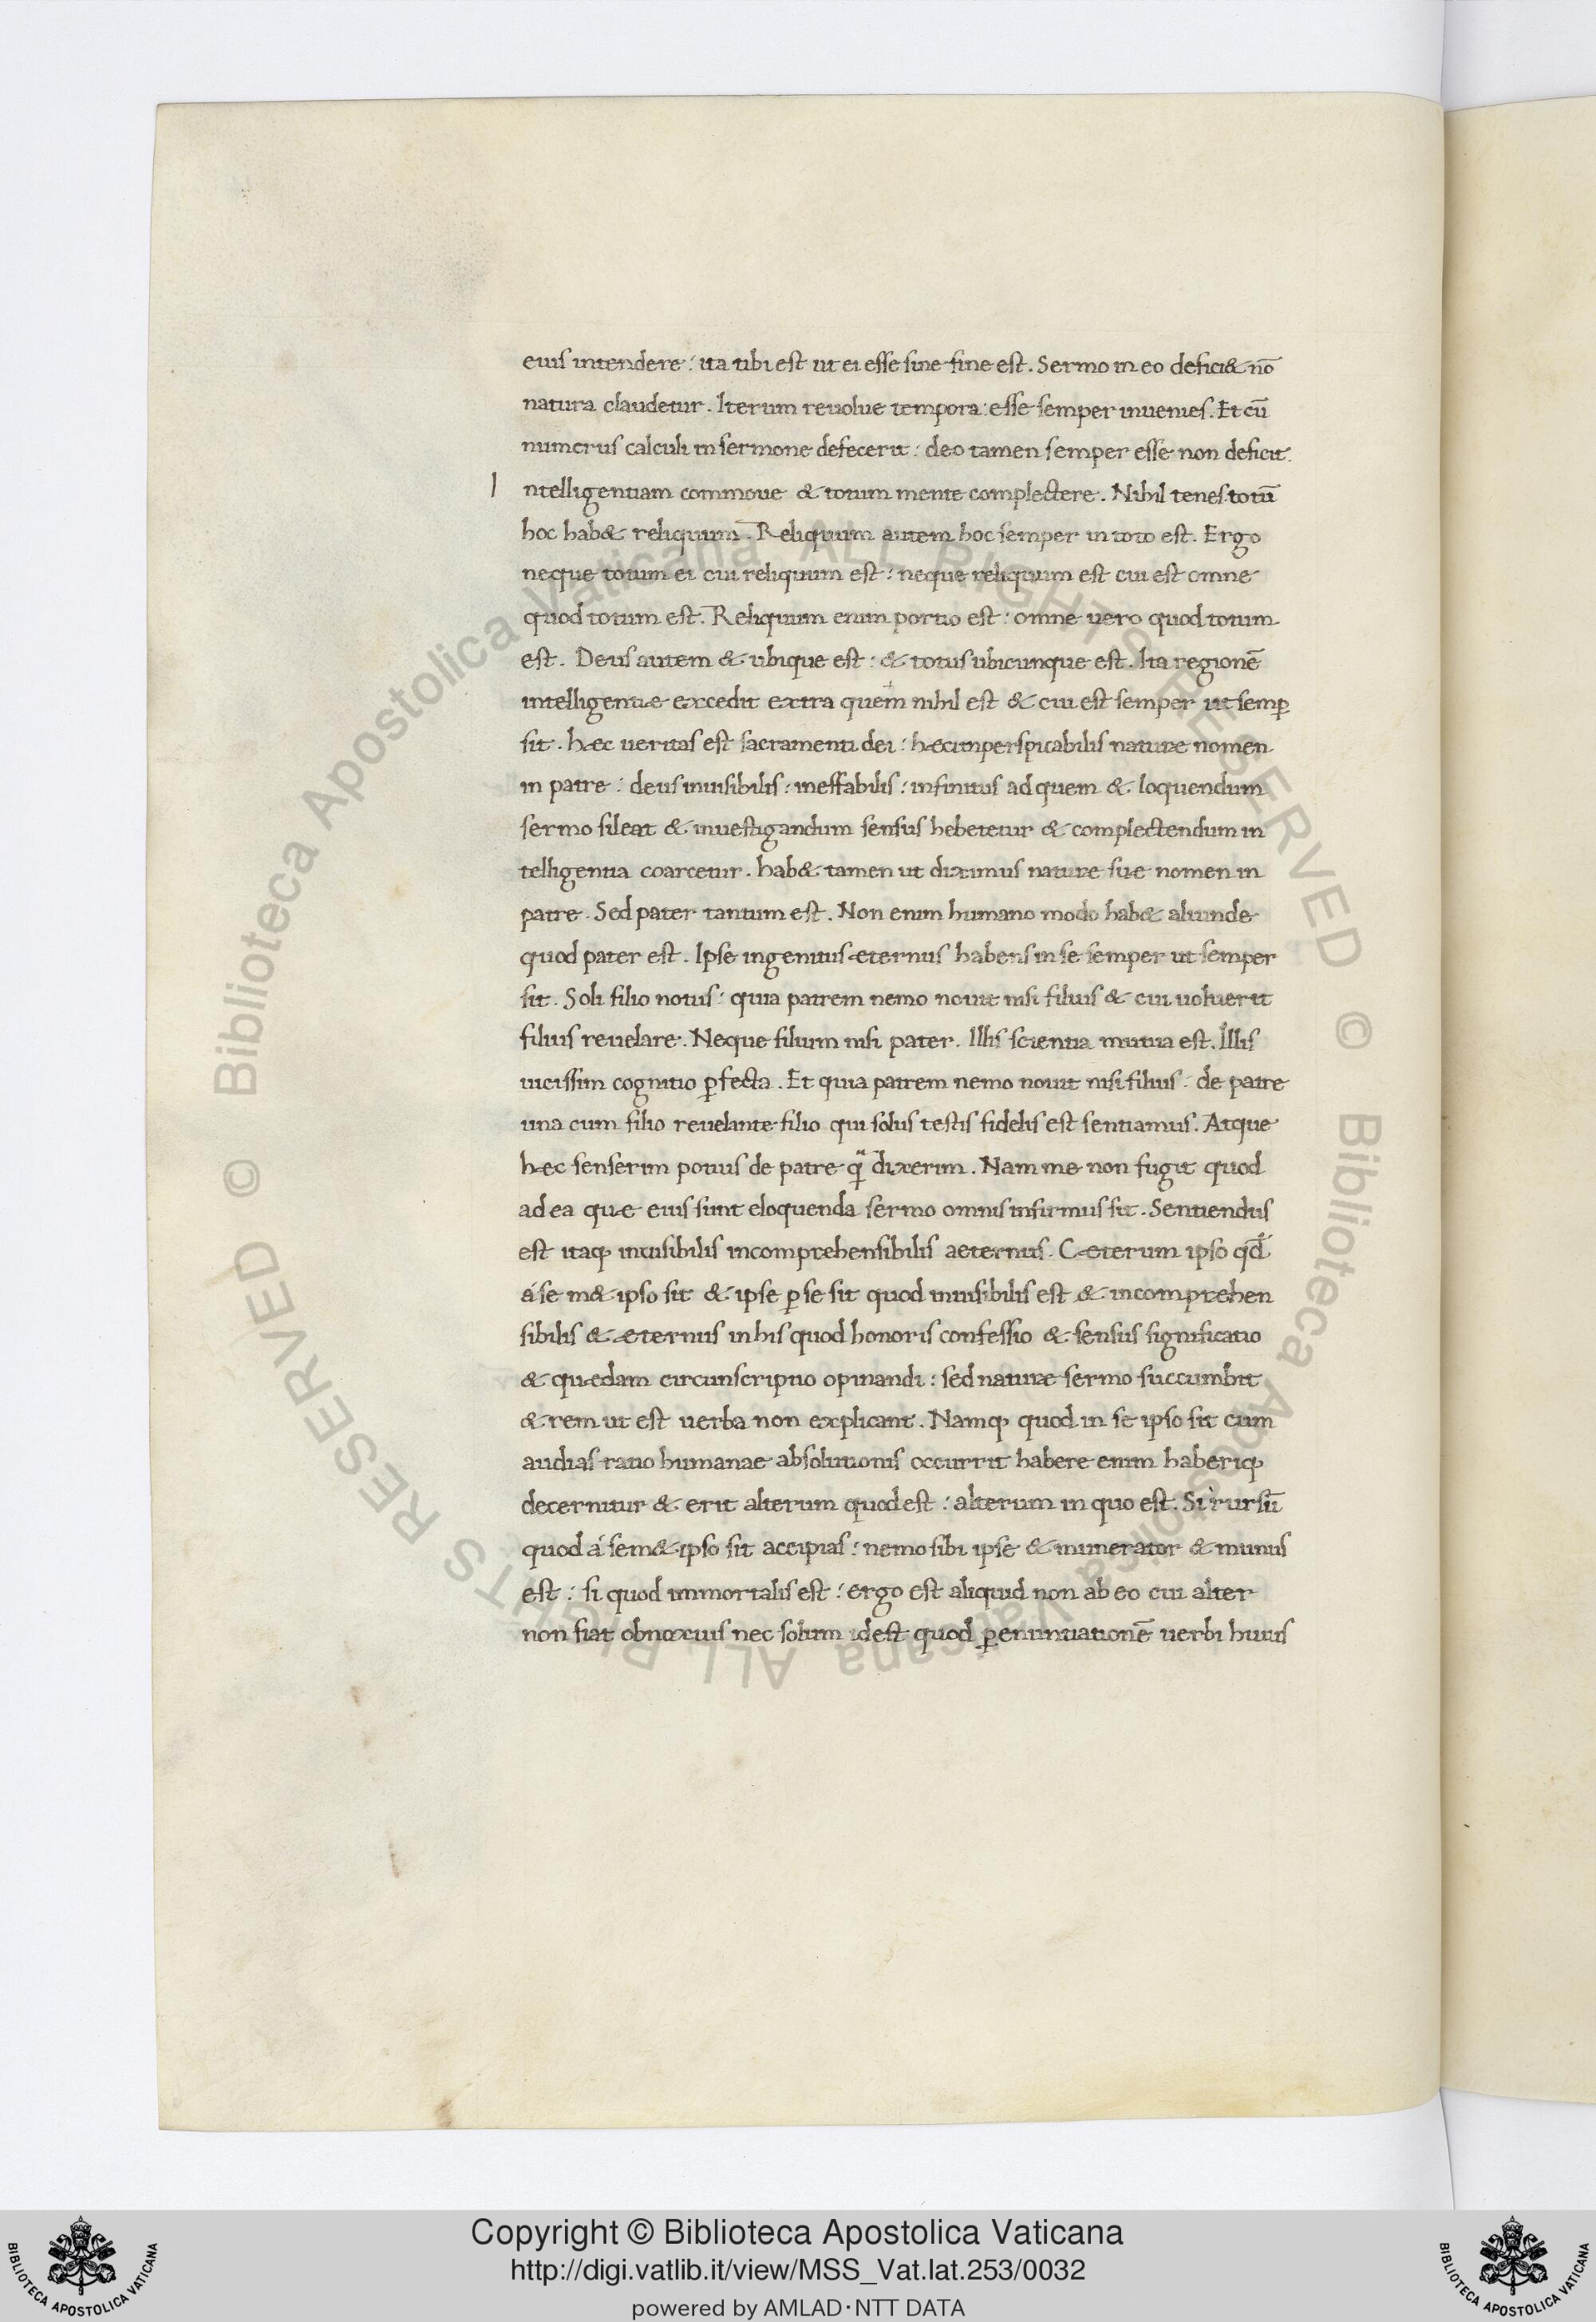 eius intendere: ita tibi est ut ei esse sine fine est. Sermo in eo defici& nō
natura claudetur. Iterum reuolue tempora: esse semper inuenies. Et cū
numerus calculi in sermone defecerit: deo tamen semper esse non deficit.
Intelligentiam commoue & totum mente complectere. Nihil tenes. totū
hoc hab& reliquum. Reliquum autem hoc semper in toto est. Ergo
neque totum ei cui reliquum est: neque reliquum est cui est omne
quod totum est. Reliquum enim portio est: omne uero quod totum
est. Deus autem & ubique est: & totus ubicunque est. Ita regionē
intelligentie excedit extra quem nihil est & cui est semper ut semꝑ
sit. hec ueritas est sacramenti dei: hec imperspicabilis nature nomen
in patre: deus inuisibilis: ineffabilis: infinitus ad quem & loquendum
sermo sileat & inuestigandum sensus hebetetur & complectendum in
telligentia coarcetur. hab& tamen ut diximus nature sue nomen in
patre. Sed pater tantum est. Non enim humano modo hab& aliunde
quod pater est. Ipse ingenitus eternus habens in se semper ut semper
sit. Soli filio notus: quia patrem nemo nouit nisi filius & cui uoluerit
filius reuelare. Neque filium nisi pater. Illis scientia mutua est. Illis
uicissim cognitio ꝑfecta. Et quia patrem nemo nouit nisi filius: de patre
una cum filio reuelante filio qui solus testis fidelis est sentiamus. Atque
hec senserim potius de patre q̃ dixerim. Nam me non fugit quod
ad ea que eius sunt eloquenda sermo omnis infirmus sit. Sentiendus
est itaqꝫ inuisibilis incomprehensibilis aeternus. Ceterum ipso qđ
á se m& ipso sit & ipse ꝑ se sit quod inuisibilis est & incomprehen
sibilis & eternus in his quod honoris confessio & sensus significatio
& quedam circunscriptio opinandi: sed nature sermo succumbit
& rem ut est uerba non explicant. Namqꝫ quod in se ipso sit cum
audias ratio humanae absolutionis occurrit habere enim haberiqꝫ
decernitur & erit alterum quod est: alterum in quo est. Si rursū
quod á sem& ipso sit accipias: nemo sibi ipse & munerator & munus
est: si quod immortalis est: ergo est aliquid non ab eo cui alter
non fiat obnoxius nec solum id est quod ꝑ enuntiationē uerbi huius
© Biblioteca Apostolica Vaticana ALL RIGHTS RESERVED © Biblioteca Apostolica Vaticana ALL RIGHTS RESERVED
Copyright © Biblioteca Apostolica Vaticana
http://digi.vatlib.it/view/MSS_Vat.lat.253/0032
powered by AMLAD・NTT DATA
BIBLIOTECA APOSTOLICA VATICANA
BIBLIOTECA APOSTOLICA VATICANA